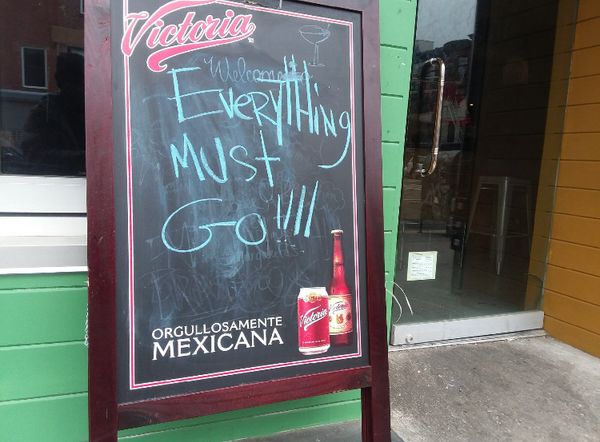 Victoria
Welcome to
EVERYTHING
MUST
GO!!!!
ORGULLOSAMENTE
MEXICANA
Victoria
Victoria